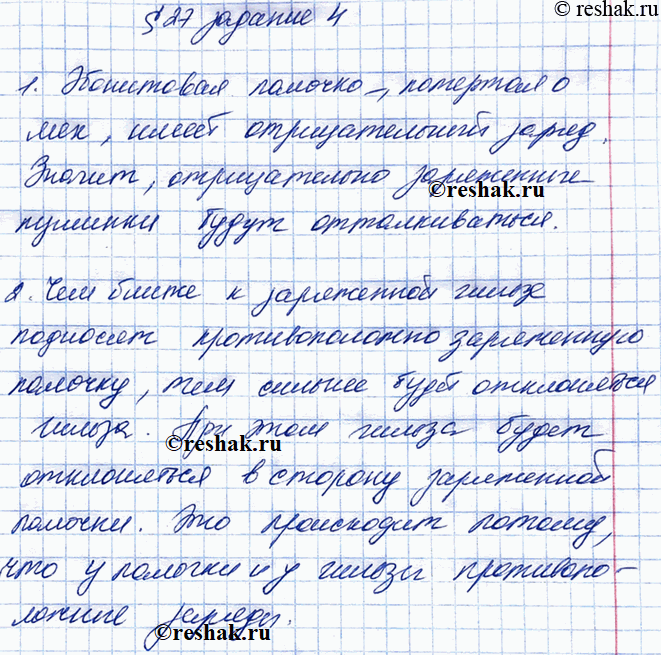 ©reshak.ru
§27 задание 4
1. Эбонитовая палочка, потертая о
мех, имеет отрицательный заряд.
Значит, отрицательно заряженные
©reshak.ru
пушинки будут отталкиваться.
2. Чем ближе к заряженной гильзе
подносят противоположно заряженную
палочку, тем сильнее будет отклоняться
гильза. При этом гильза будет
©reshak.ru
отклоняться в сторону заряженной
палочки. Это происходит потому,
что у палочки и у гильзы противопо-
ложные заряды.
©reshak.ru